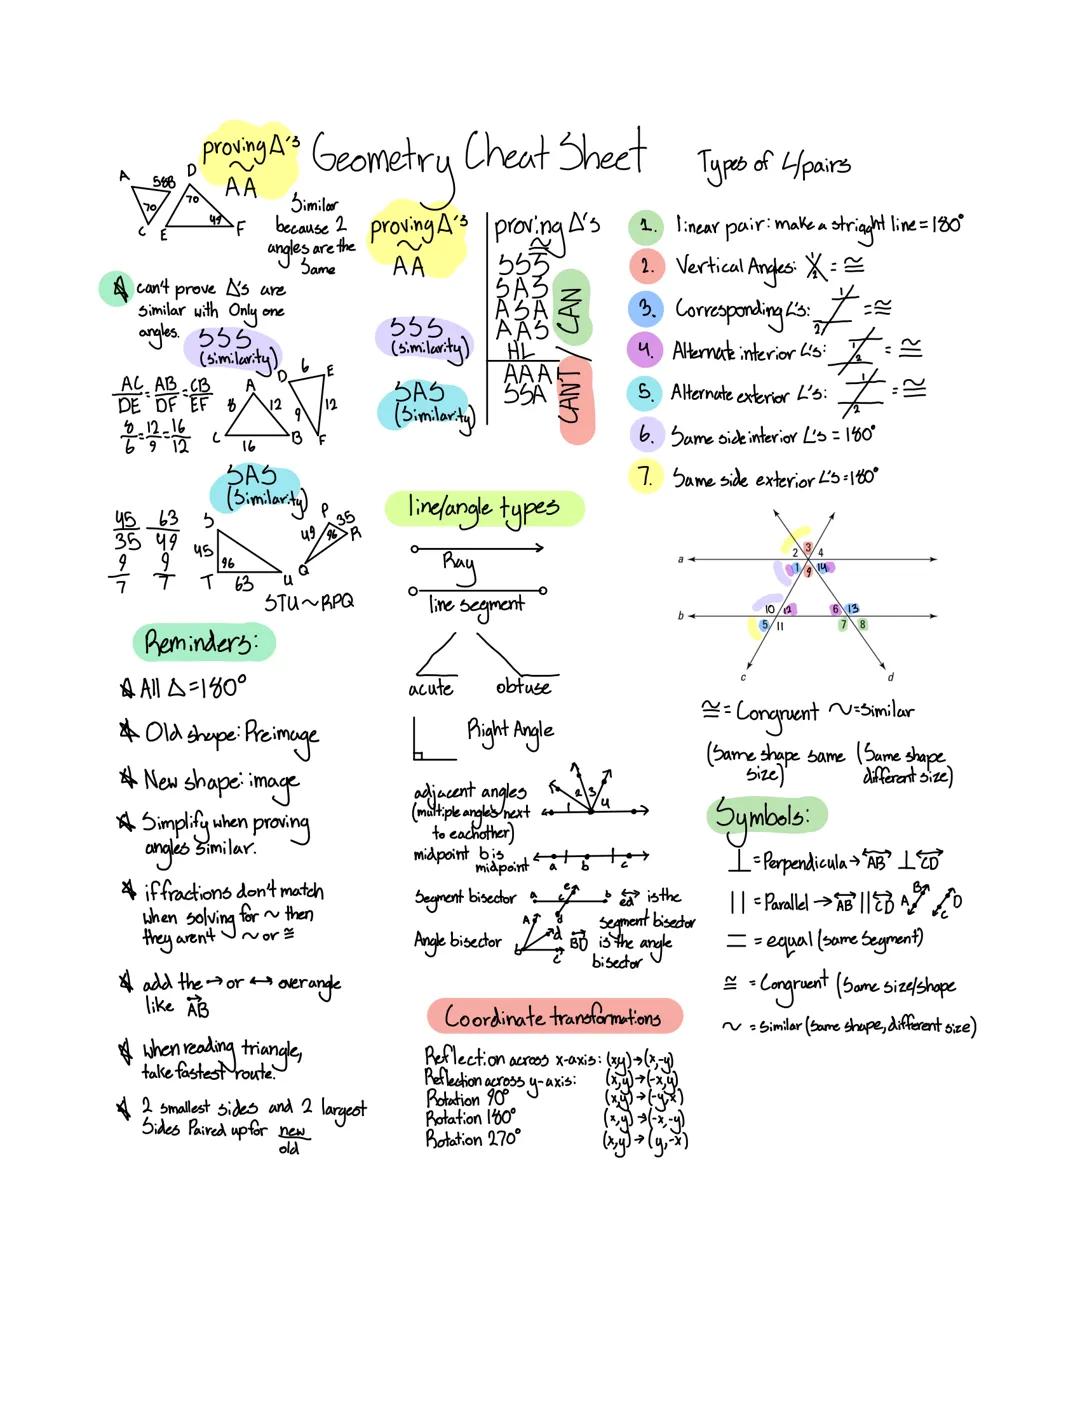 Geometry Cheat Sheet
proving Δ's
~
AA
A
D
70
70
C
E
F
Similar
because 2
angles are the
Same
can't prove Δ's are
similar with Only one
angles.
SSS
(similarity)
AC/DE = AB/DF = CB/EF
8/6 = 12/9 = 16/12
A
8
12
C
B
16
D
6
E
9
12
F
SAS
(Similarity)
45/35 63/49
9/7 9/7
S
45
96
T
63
U
P
35
49
96
R
Q
STU~RPQ
Reminders:
All Δ=180°
Old shape: Preimage
New shape: image
Simplify when proving
angles similar.
if fractions don't match
when solving for ~ then
they aren't ~ or ≅
add the → or ↔ over angle
like AB
when reading triangle,
take fastest route.
2 smallest sides and 2 largest
Sides Paired up for new/old
proving Δ's
~
AA
SSS
(similarity)
SAS
(Similarity)
proving Δ's
≅
SSS
SAS
ASA
AAS
HL
CAN
AAA
SSA
CAN'T
line/angle types
Ray
line segment
acute obtuse
Right Angle
adjacent angles
(multiple angles next
to eachother)
1 2 3 4
midpoint b is
midpoint
a b c
Segment bisector
a e c b d
ed is the
segment bisector
Angle bisector
A d b c
BD is the angle
bisector
Coordinate transformations
Reflection across x-axis: (x,y)→(x,-y)
Reflection across y-axis: (x,y)→(-x,y)
Rotation 90° (x,y)→(-y,x)
Rotation 180° (x,y)→(-x,-y)
Rotation 270° (x,y)→(y,-x)
Types of ∠/pairs
1. linear pair: make a strigght line=180°
2. Vertical Angles: = ≅
3. Corresponding ∠'s: 1 2 = ≅
4. Alternate interior ∠'s: 1 2 = ≅
5. Alternate exterior ∠'s: 1 2 = ≅
6. Same side interior ∠'s = 180°
7. Same side exterior ∠'s=180°
3
2 4
a
1 9 14
10 12 6 13
b
5 11 7 8
c d
≅ = Congruent ~=Similar
(Same shape same
size)
(Same shape
different size)
Symbols:
⊥ = Perpendicula → AB ⊥ CD
|| = Parallel → AB || CD A B C D
= = equal (same Segment)
≅ = Congruent (Same size/shape
~ = Similar (same shape, different size)